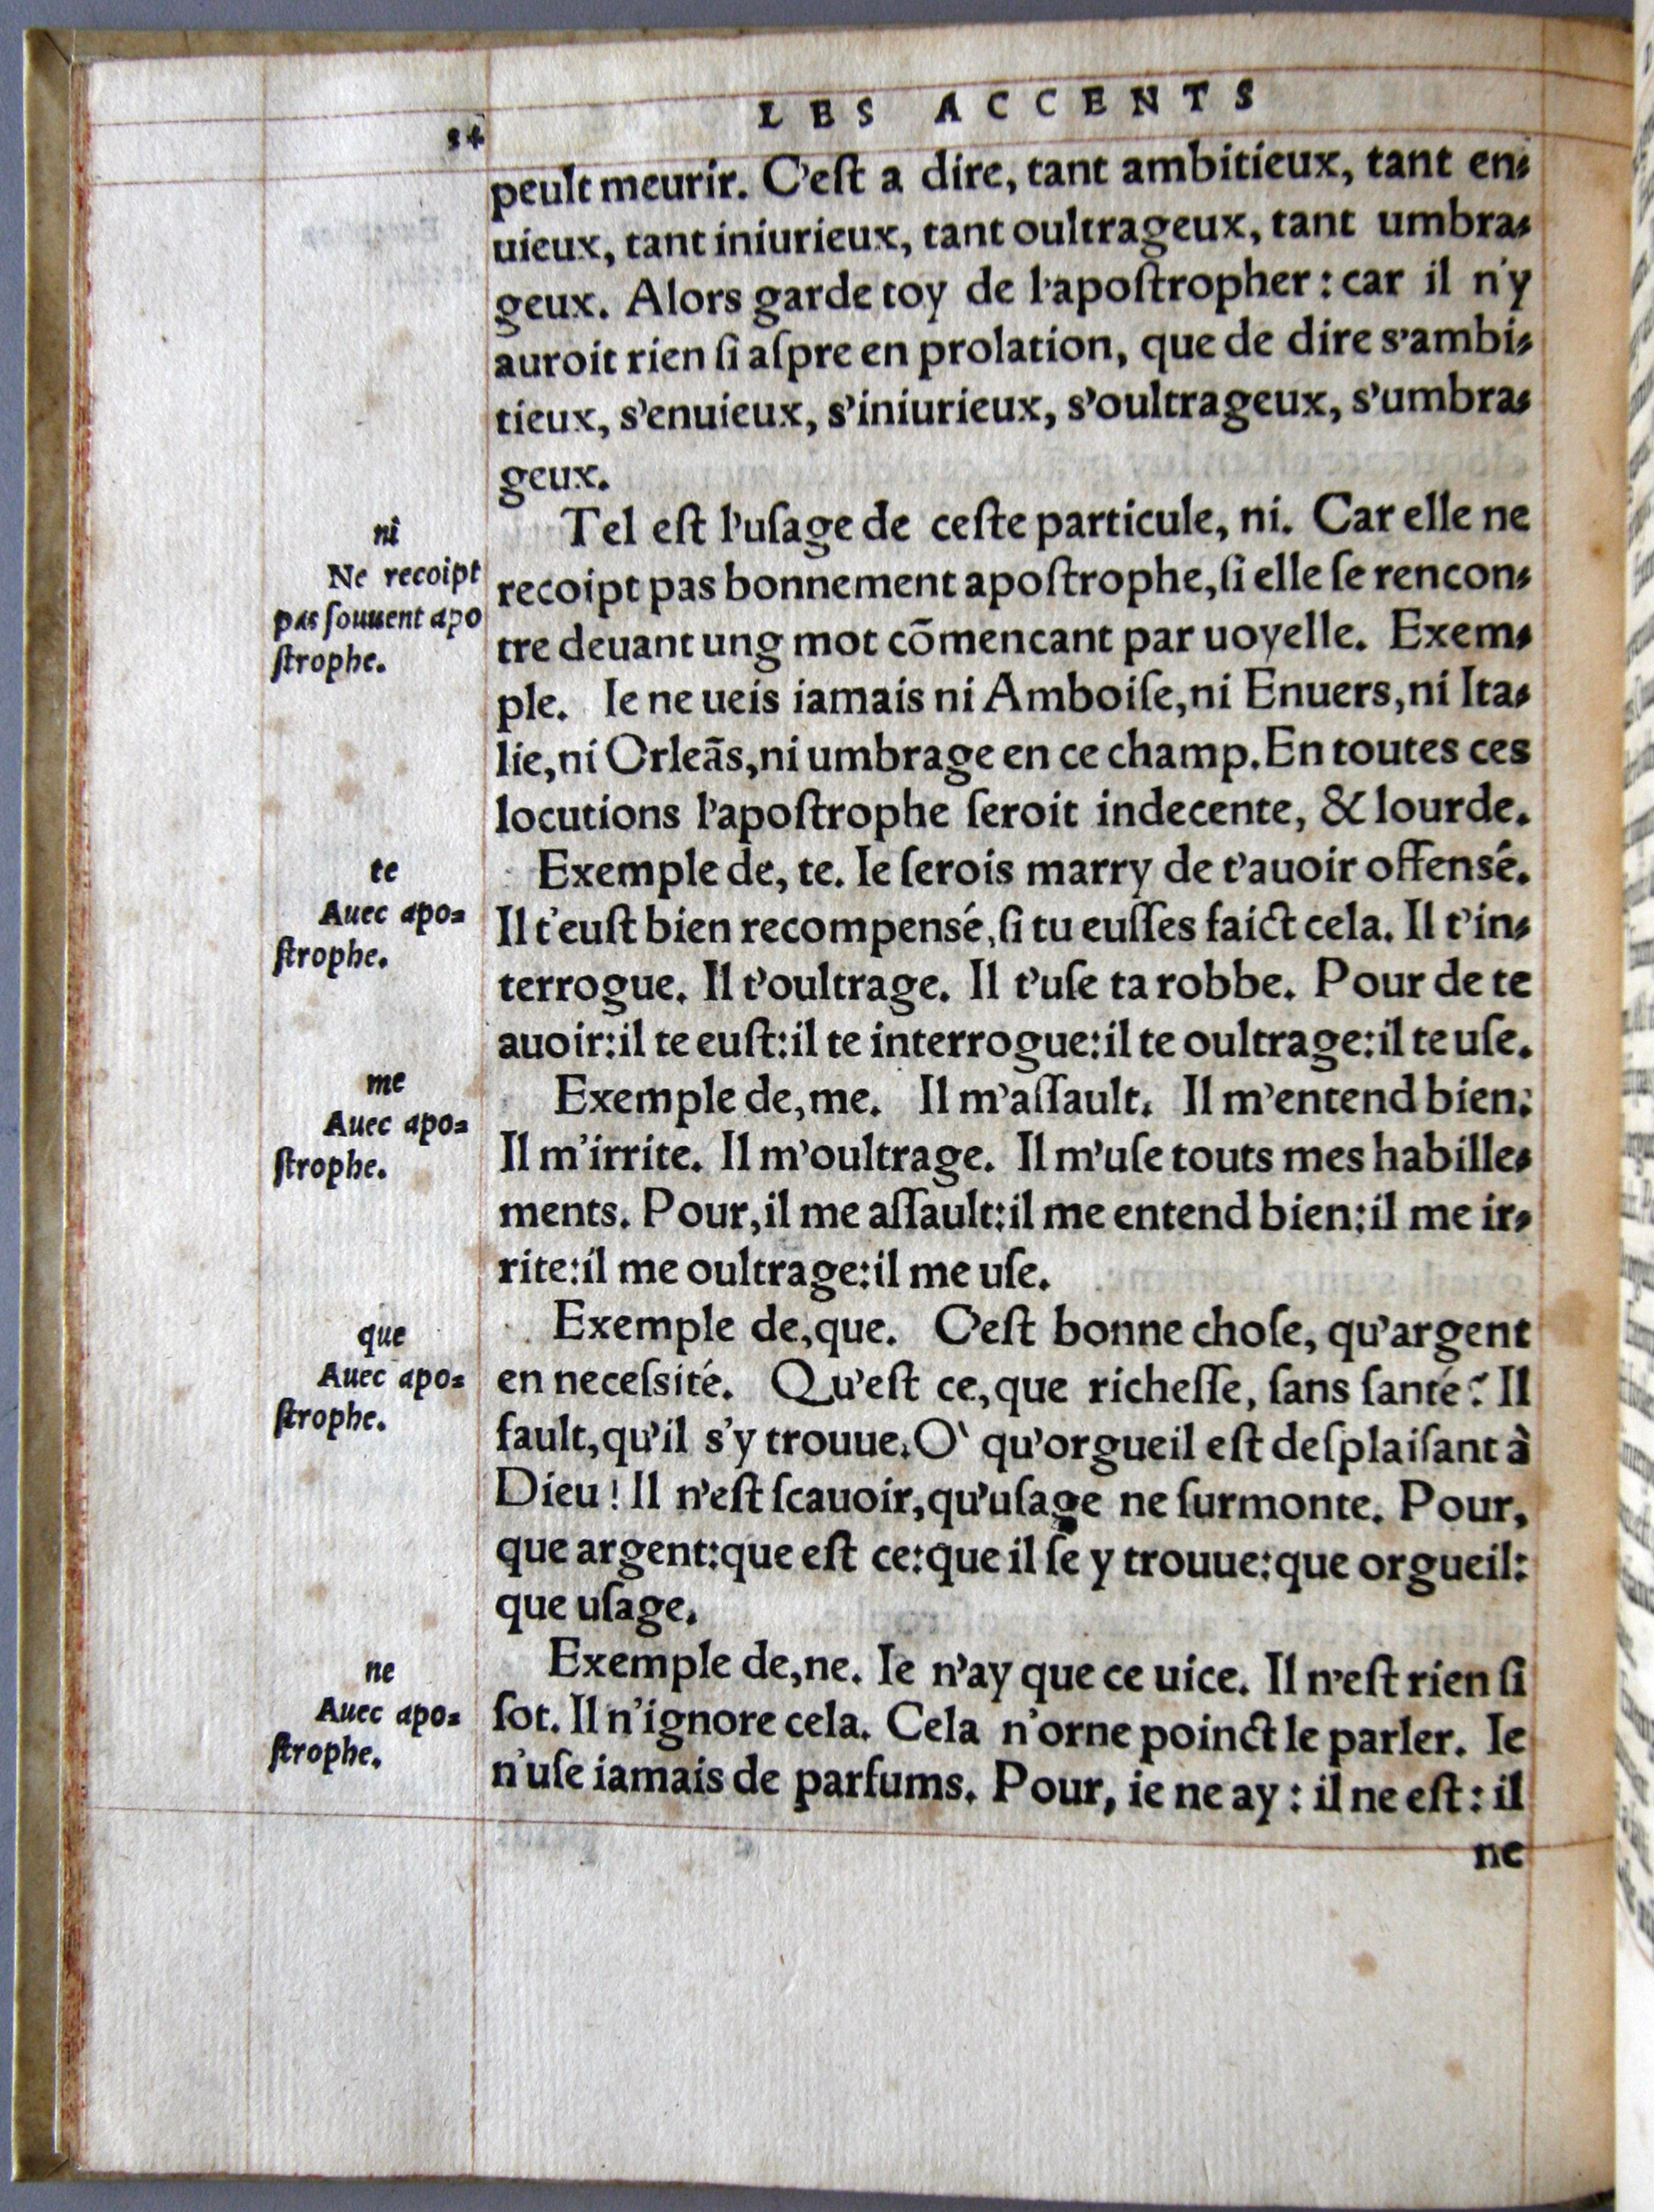 LES ACCENTS
34
peult meurir. C'eſt a dire, tant ambitieux, tant en-
uieux, tant iniurieux, tant oultrageux, tant umbra-
geux. Alors garde toy de l'apoſtropher: car il n'y
auroit rien ſi aſpre en prolation, que de dire s'ambi-
tieux, s'enuieux, s'iniurieux, s'oultrageux, s'umbra-
geux.
ni
Ne recoipt
pas ſouuent apo
ſtrophe.
Tel eſt l'uſage de ceſte particule, ni. Car elle ne
recoipt pas bonnement apoſtrophe, ſi elle ſe rencon-
tre deuant ung mot cõmencant par uoyelle. Exem-
ple. Ie ne ueis iamais ni Amboiſe, ni Enuers, ni Ita-
lie, ni Orleãs, ni umbrage en ce champ. En toutes ces
locutions l'apoſtrophe ſeroit indecente, & lourde.
te
Auec apo-
ſtrophe.
Exemple de, te. Ie ſerois marry de t'auoir offensé.
Il t'euſt bien recompensé, ſi tu euſſes faict cela. Il t'in-
terrogue. Il t'oultrage. Il t'uſe ta robbe. Pour de te
auoir: il te euſt: il te interrogue: il te oultrage: il te uſe.
me
Auec apo-
ſtrophe.
Exemple de, me. Il m'aſſault. Il m'entend bien:
Il m'irrite. Il m'oultrage. Il m'uſe touts mes habille-
ments. Pour, il me aſſault: il me entend bien: il me ir-
rite: il me oultrage: il me uſe.
que
Auec apo-
ſtrophe.
Exemple de, que. C'eſt bonne choſe, qu'argent
en neceſsité. Qu'eſt ce, que richeſſe, ſans ſanté? Il
fault, qu'il s'y trouue. O` qu'orgueil eſt deſplaiſant à
Dieu! Il n'eſt ſcauoir, qu'uſage ne ſurmonte. Pour,
que argent: que eſt ce: que il ſe y trouue: que orgueil:
que uſage.
ne
Auec apo-
ſtrophe.
Exemple de, ne. Ie n'ay que ce uice. Il n'eſt rien ſi
ſot. Il n'ignore cela. Cela n'orne poinct le parler. Ie
n'uſe iamais de parfums. Pour, ie ne ay: il ne eſt: il
ne